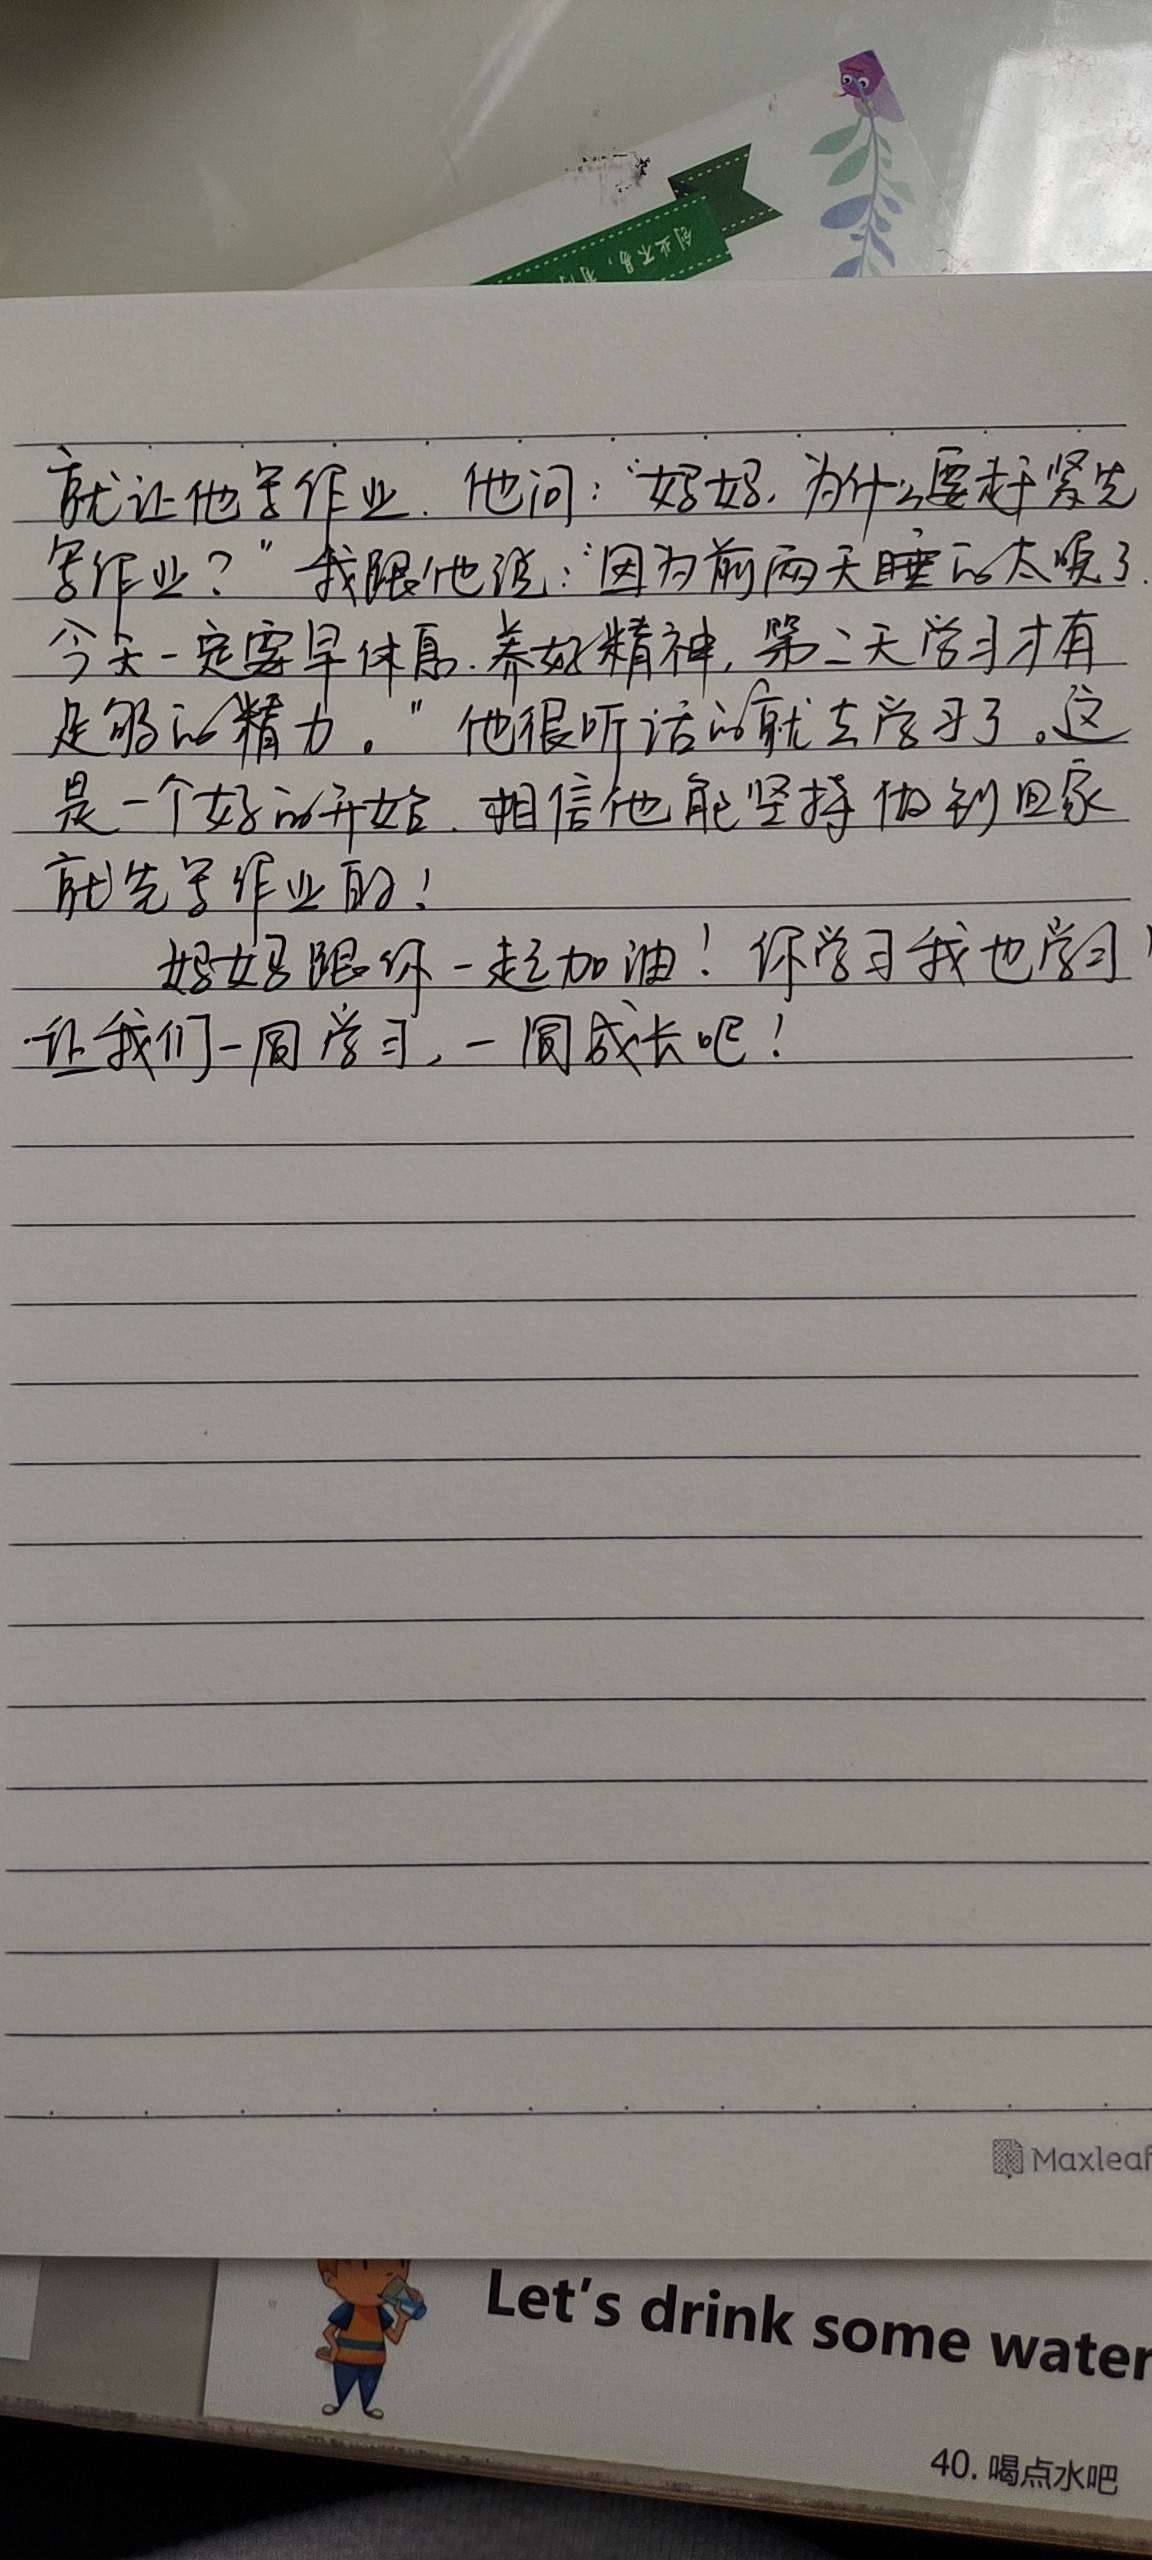 创业不易,有
就让他写作业. 他问:“妈妈,为什么要赶紧先
写作业?” 我跟他说:“因为前两天睡的太晚了.
今天一定要早休息.养好精神,第二天学习才有
足够的精力。” 他很听话的就去学习了。这
是一个好的开始.相信他能坚持做到回家
就先写作业的!
妈妈跟你一起加油!你学习我也学习!
让我们一同学习,一同成长吧!
Maxleaf
Let's drink some water
40. 喝点水吧